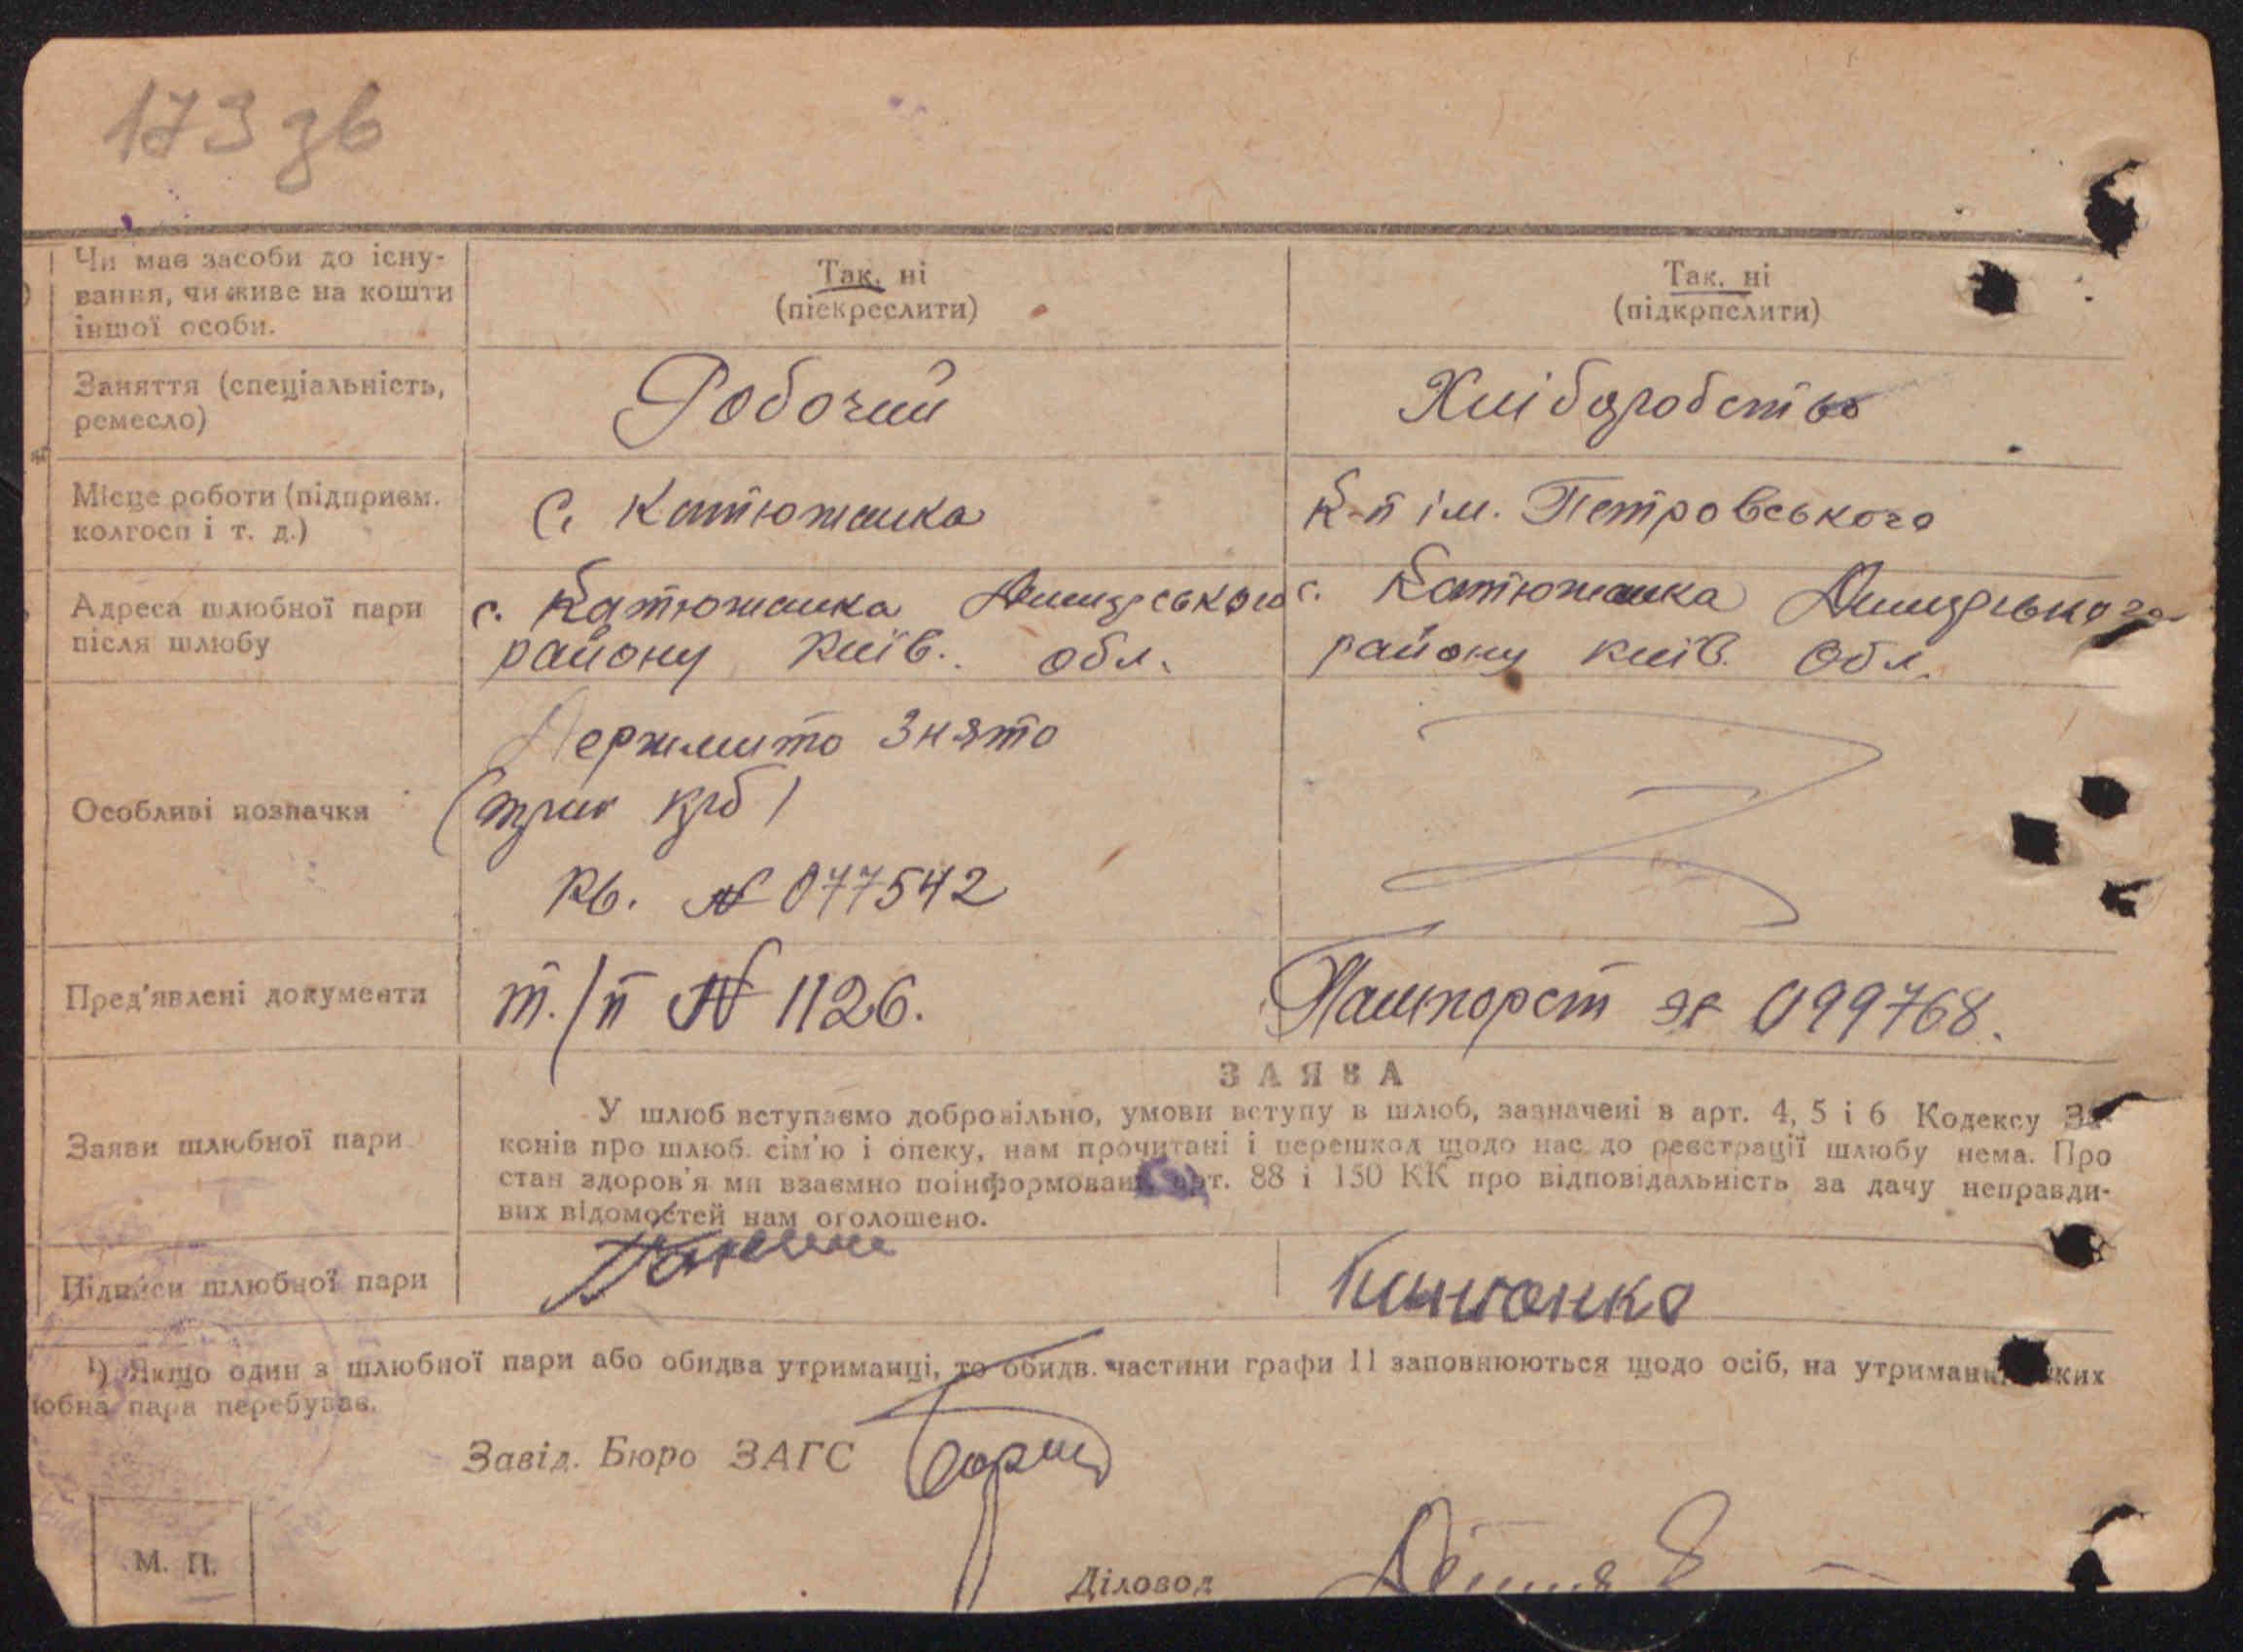 173 зв
Чи має засоби до існу-
вання, чи живе на кошти
іншої особи.
Так, ні
(піекреслити)
Так, ні
(підкрпслити)
Заняття (спеціальність,
ремесло)
Робочий
Хліборобство
Місце роботи (підприєм.
колгосп і т. д.)
с. Катюжанка
к-п ім. Петровського
Адреса шлюбної пари
після шлюбу
с. Катюжанка Димерського
району Київ. обл.
с. Катюжанка Димерського
району Київ. обл.
Особливі позначки
Держмито знято
(три крб)
Кв. № 077542
Пред'явлені документи
т./п № 1126.
Пашпорт 099768.
ЗАЯВА
Заяви шлюбної пари
У шлюб вступаємо добровільно, умови вступу в шлюб, зазначені в арт. 4, 5 і 6 Кодексу За-
конів про шлюб. сім'ю і опеку, нам прочитані і перешкод щодо нас до реєстрації шлюбу нема. Про
стан здоров'я ми взаємно поінформовані арт. 88 і 150 КК про відповідальність за дачу неправди-
вих відомостей нам оголошено.
Підписи шлюбної пари
¹) Якщо один з шлюбної пари або обидва утриманці, то обидв. частини графи 11 заповнюються щодо осіб, на утриманні яких
юбна пара перебуває.
Завід. Бюро ЗАГС
М. П.
Діловод